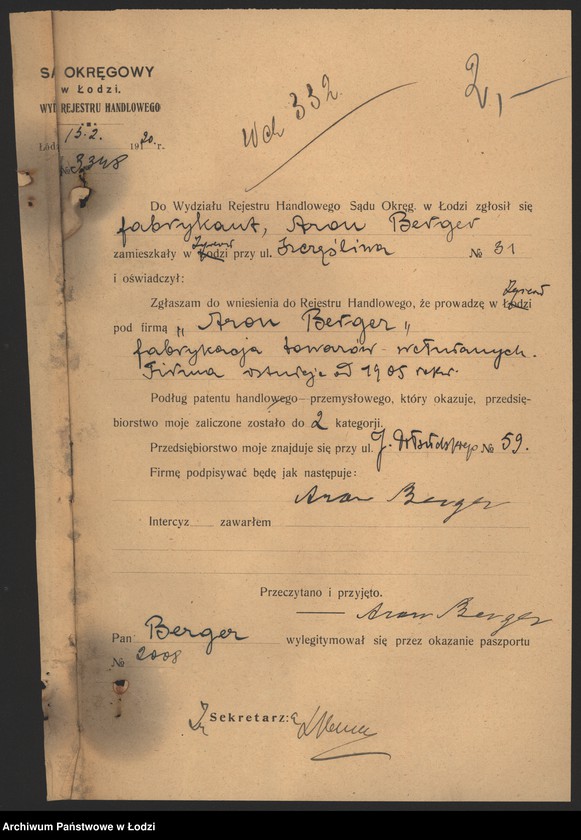 SĄD OKRĘGOWY
w Łodzi.
WYDZ. REJESTRU HANDLOWEGO
Łódź 13.2. 1920 r.
№ 3348
Wch 332.
2,—
Do Wydziału Rejestru Handlowego Sądu Okręg. w Łodzi zgłosił się
fabrykant, Aron Berger
zamieszkały w Łodzi Zgierz przy ul. Szczęśliwa № 31
i oświadczył:
Zgłaszam do wniesienia do Rejestru Handlowego, że prowadzę w Łodzi Zgierz
pod firmą „Aron Berger„
fabrykacja towarów wełnianych.
Firma istnieje od 1905 roku.
Podług patentu handlowego-przemysłowego, który okazuje, przedsię-
biorstwo moje zaliczone zostało do 2 kategorji.
Przedsiębiorstwo moje znajduje się przy ul. J. Piłsudskiego № 59.
Firmę podpisywać będę jak następuje:
Aron Berger
Intercyz zawarłem
Przeczytano i przyjęto.
Aron Berger
Pan Berger wylegitymował się przez okazanie paszportu
№ 2008
Sekretarz:
Archiwum Państwowe w Łodzi